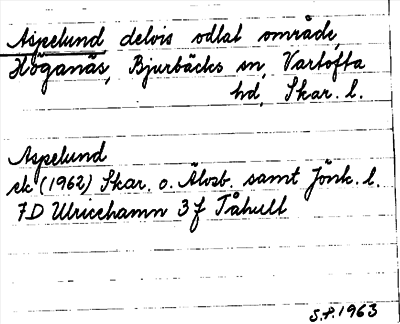 Aspelund delvis odlat område,
Höganäs, Bjurbäcks sn, Vartofta
hd, Skar. l.
Aspelund
ek (1962) Skar. o. Älvsb. samt Jönk. l.
7D Ulricehamn 3f Tåhult
S.P. 1963